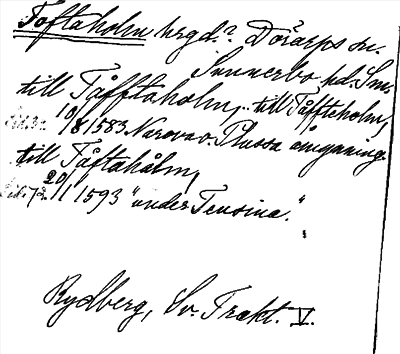 Toftaholm hrgd.? Dörarps sn.
Sunnerbo hd. Sm.
till Tåfftaholm, till Tåffteholm,
10/8 1583 Narova o. Plussa
till Tåftahålm,
20/1 1593 "under Teusina".
Rydberg, Sv. Trakt. V.